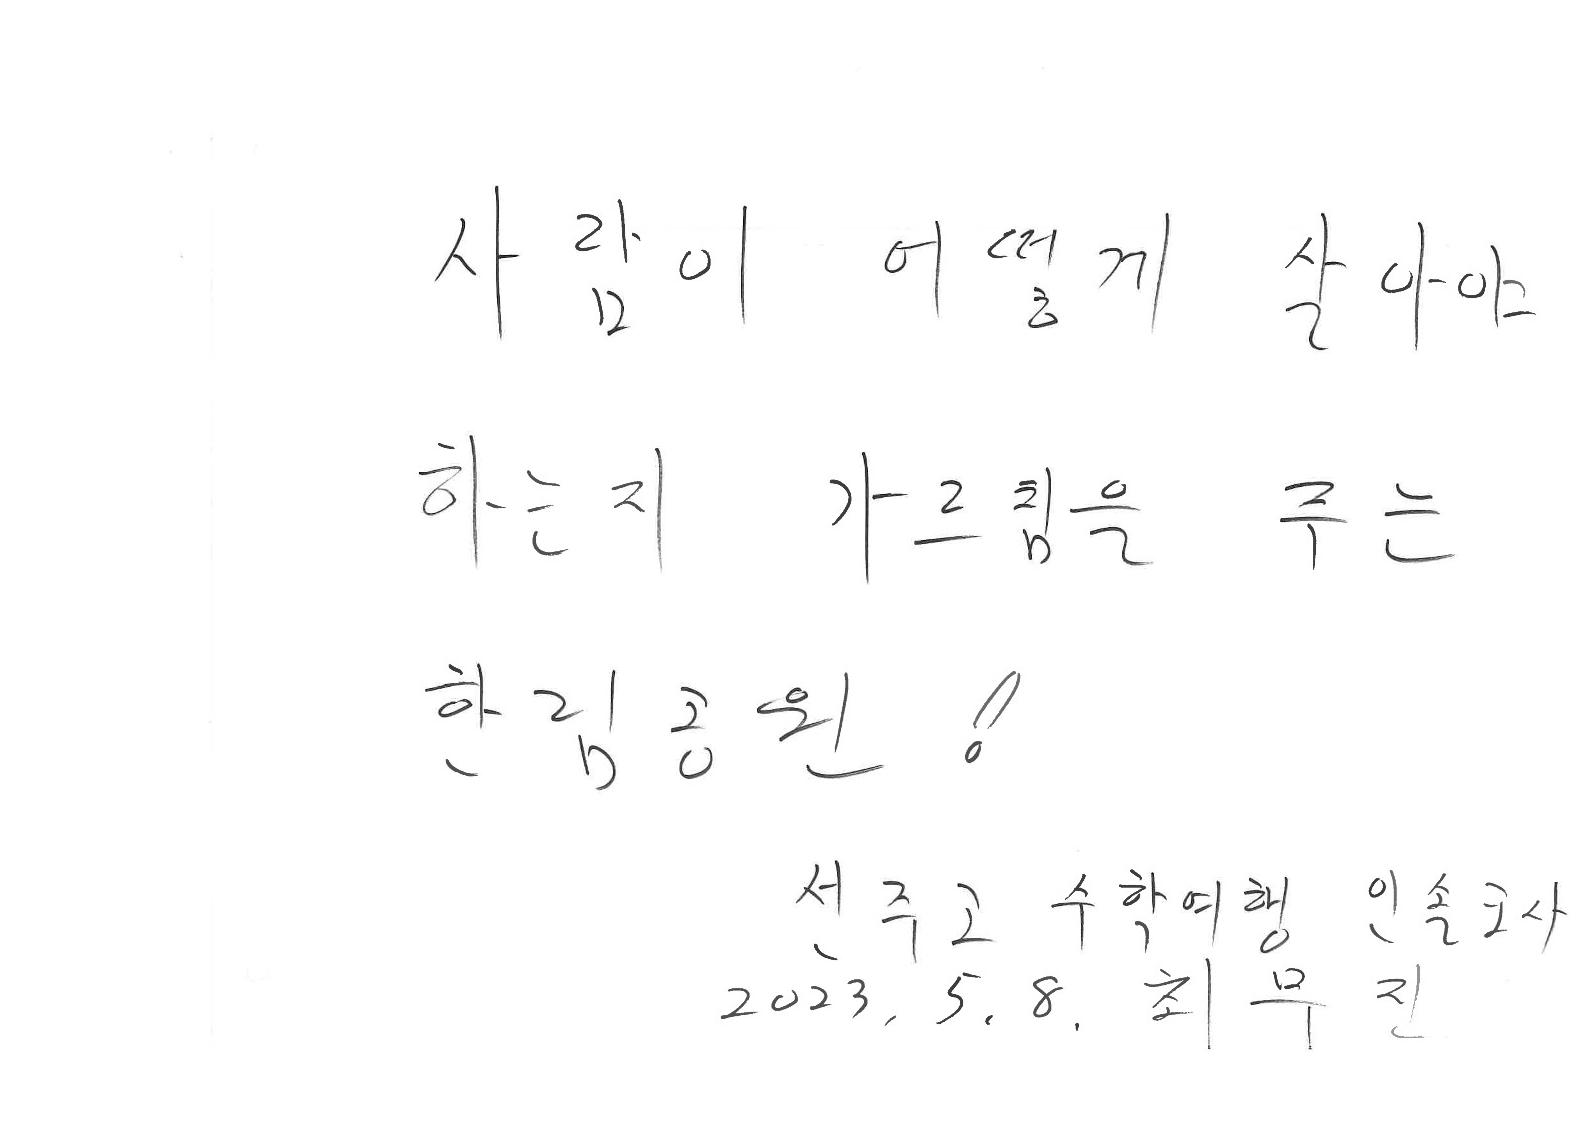 사람이 어떻게 살아야
하는지 가르침을 주는
한림공원!
선주고 수학여행 인솔교사
2023. 5. 8. 최무진